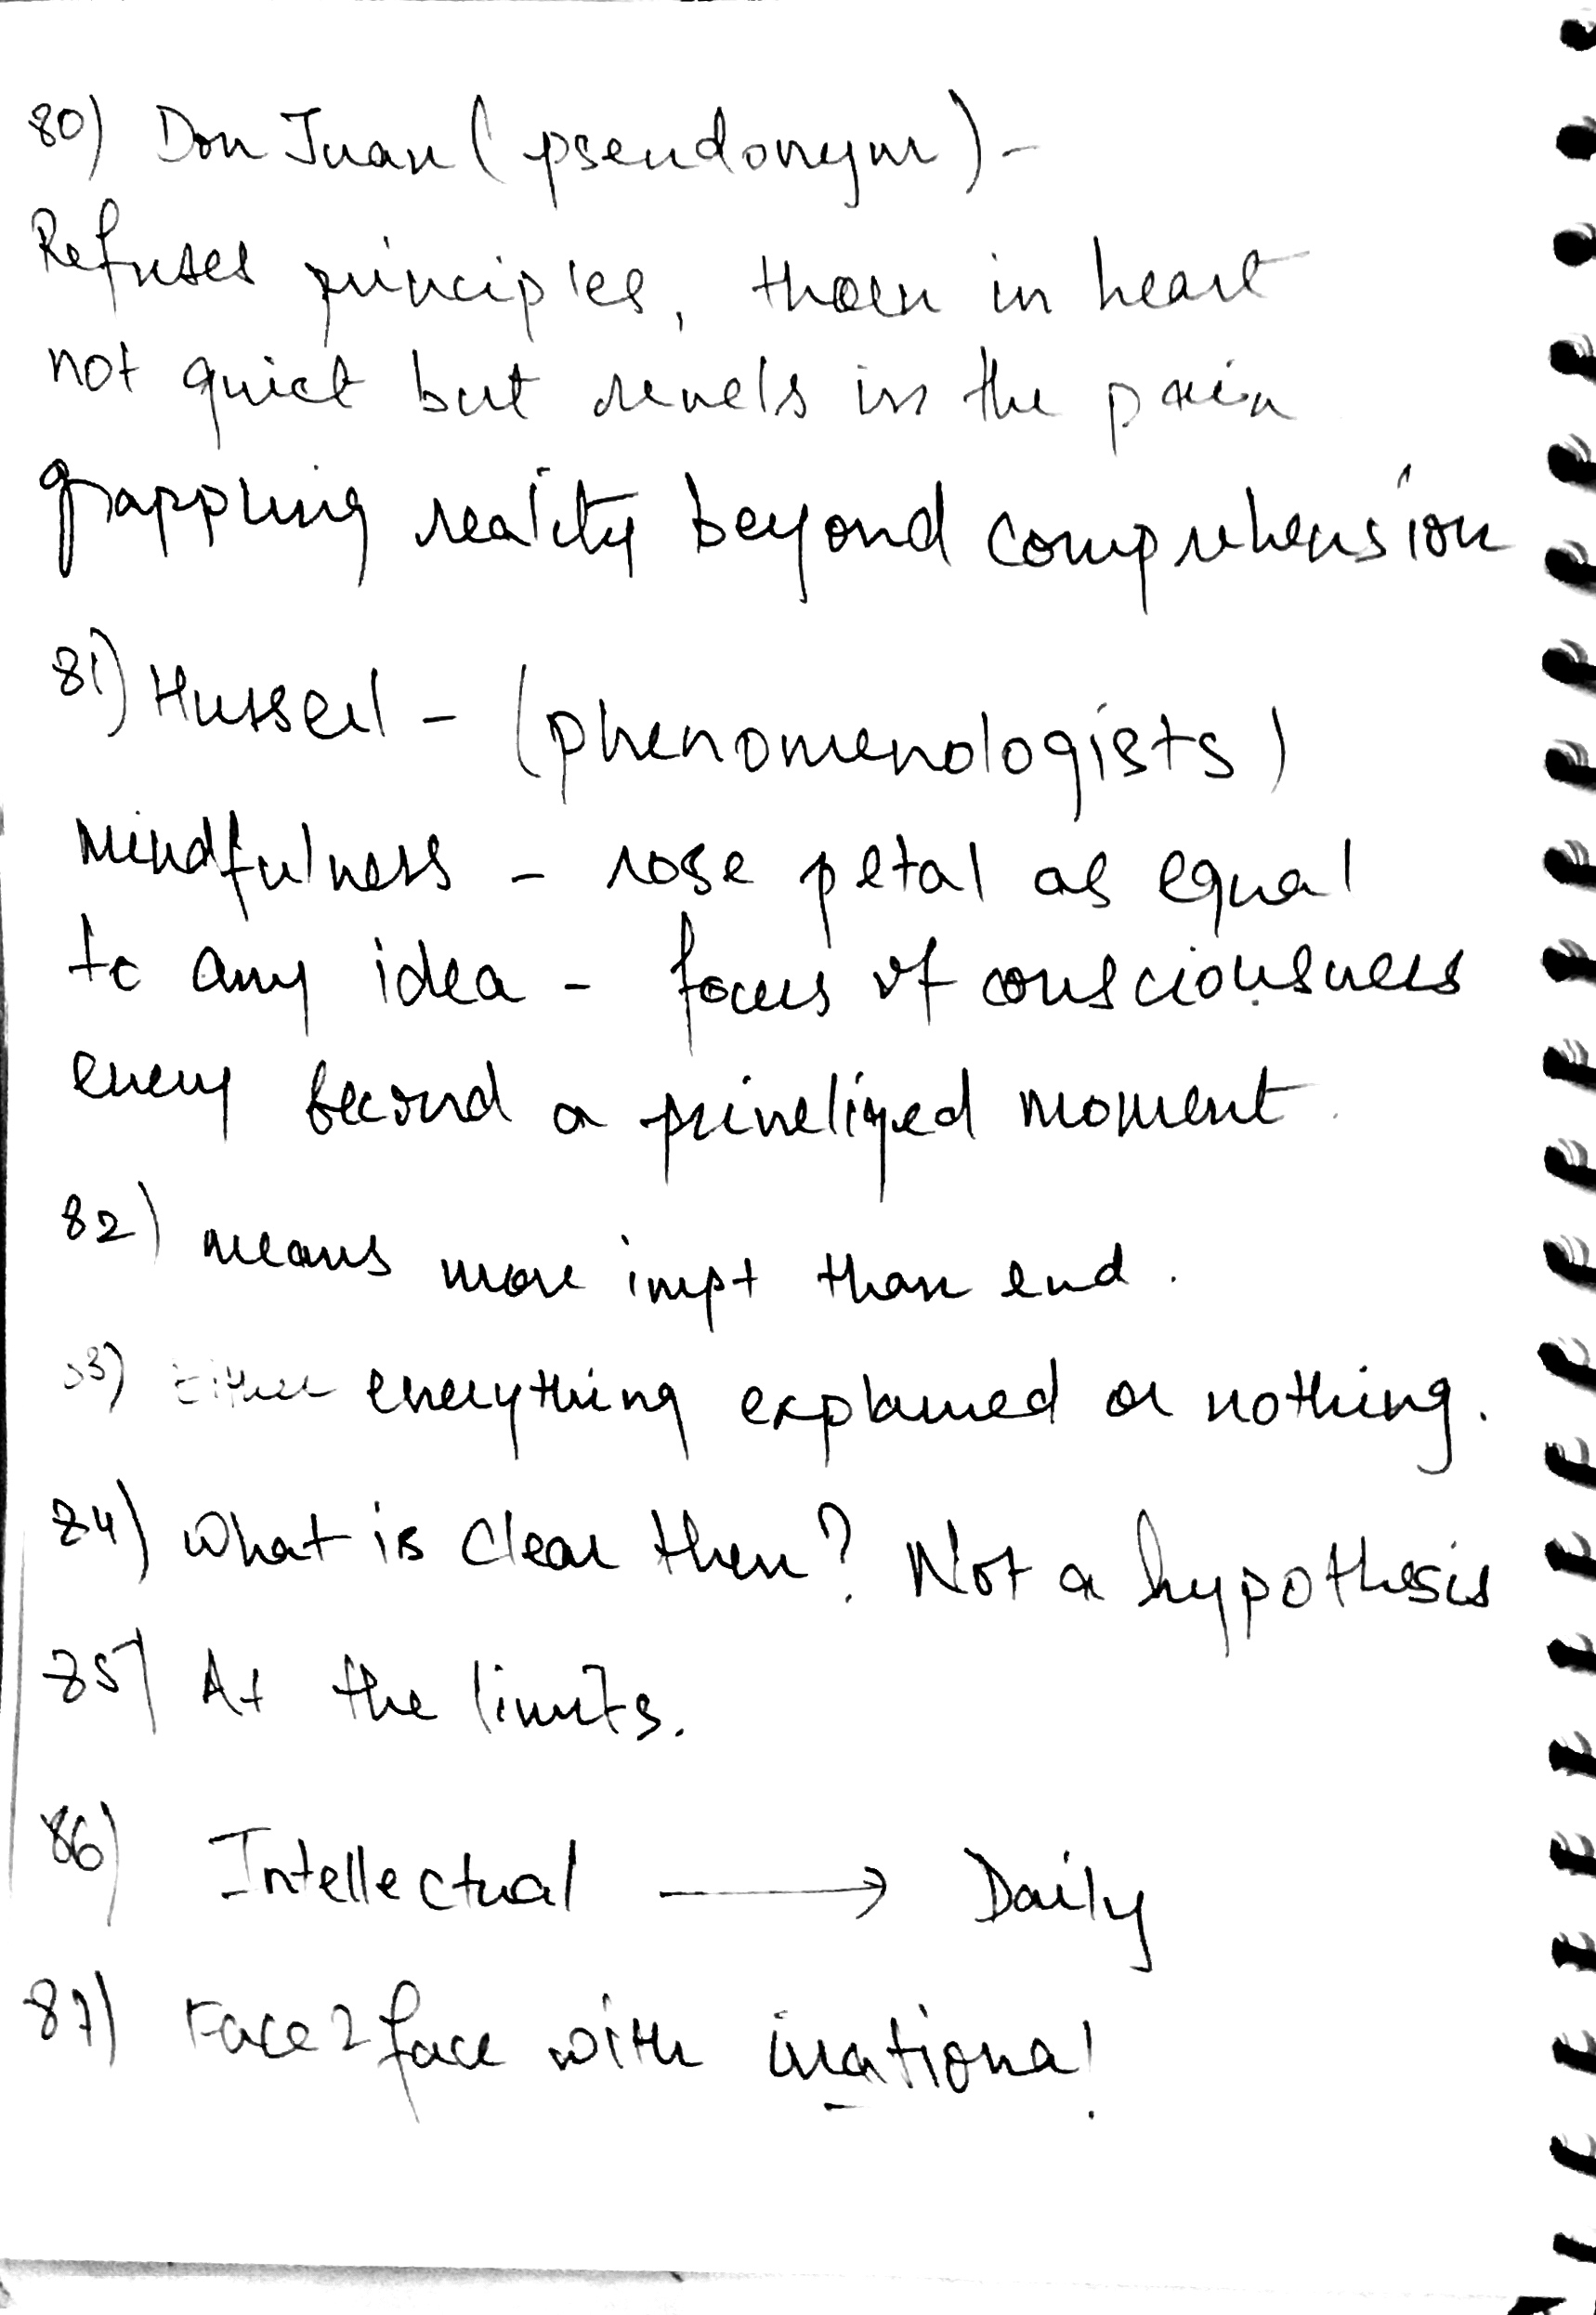 80) Don Juan (pseudonym) -
Refuses principles, thorn in heart
not quiet but revels in the pain
grappling reality beyond comprehension
81) Husserl - (phenomenologists)
Mindfulness - rose petal as equal
to any idea - focus of consciousness
every second a priveliged moment.
82) means more impt than end.
83) Either everything explained or nothing.
84) What is clear then? Not a hypothesis
85) At the limits.
86) Intellectual → Daily
87) Face 2 face with irrational